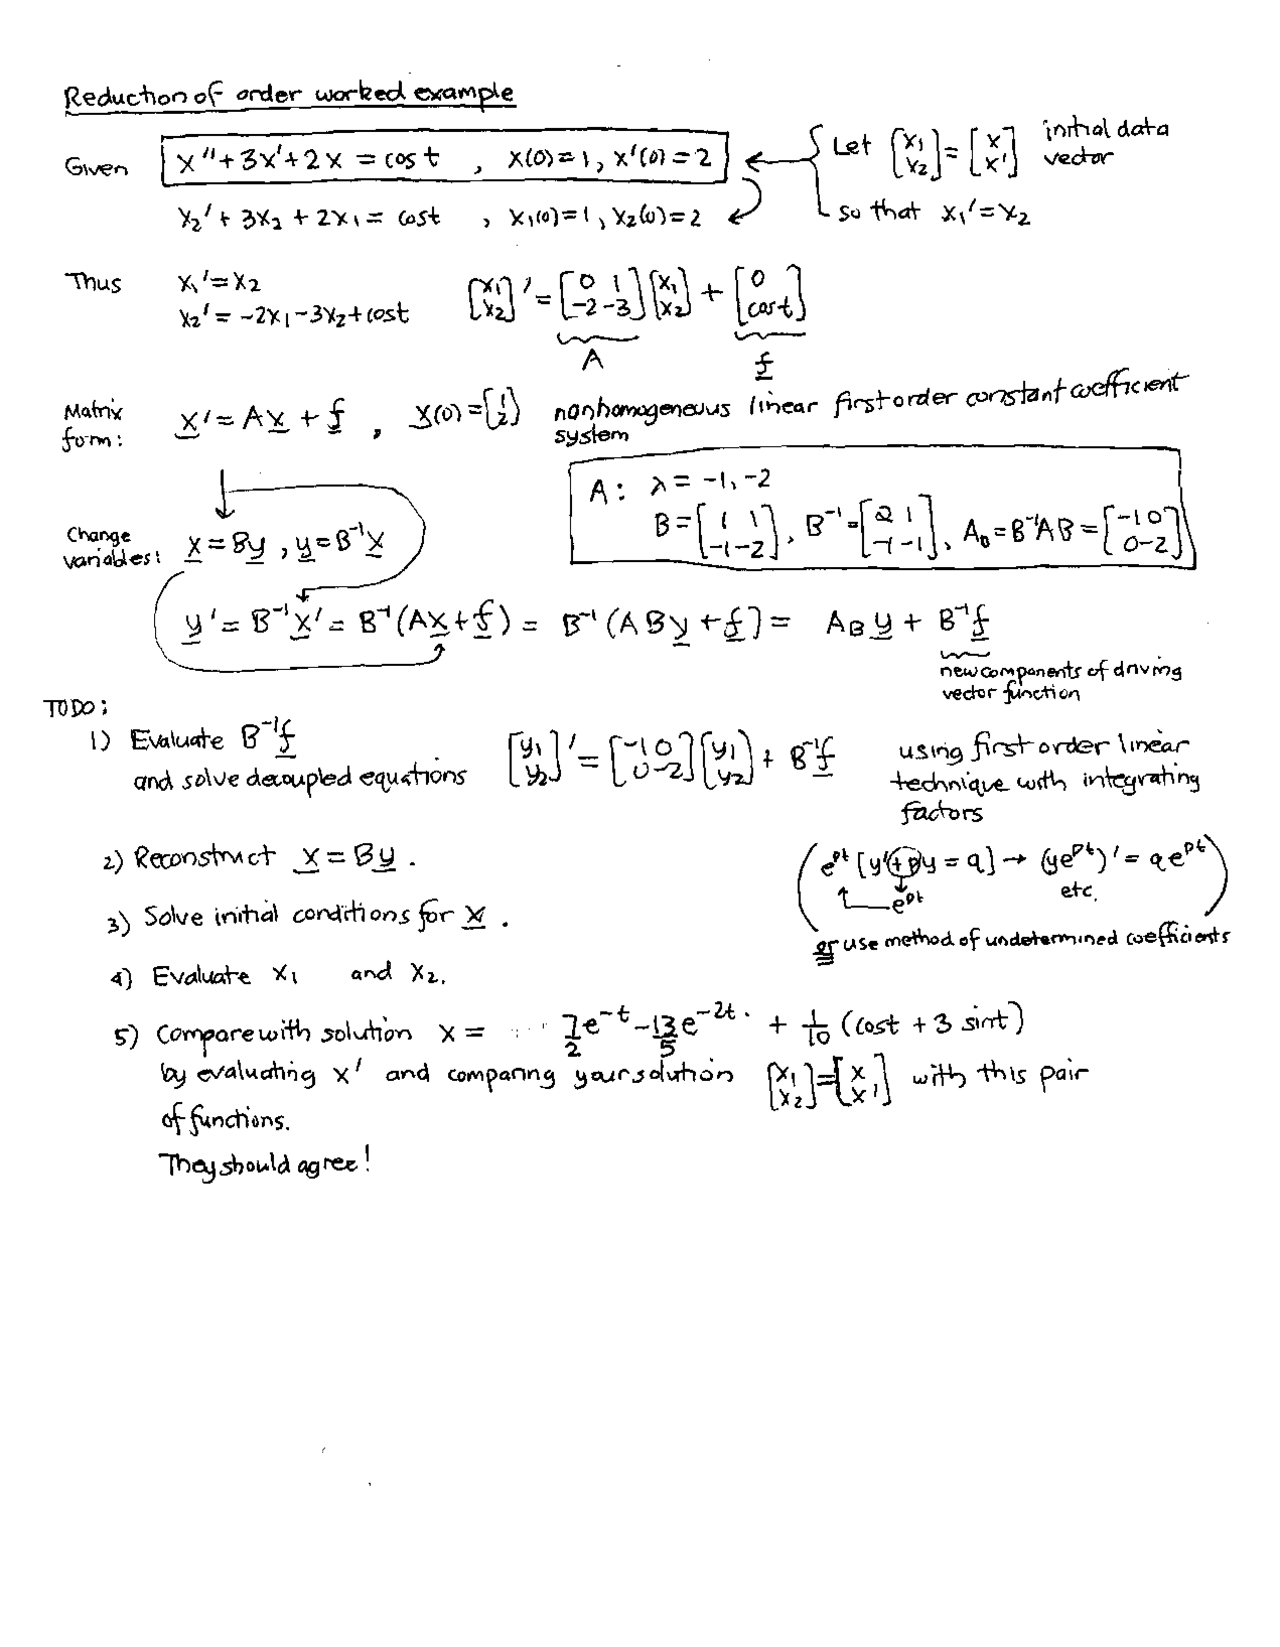 Reduction of order worked example
Given x''+3x'+2x = cos t , x(0)=1, x'(0)=2 Let [x₁ x₂] = [x x'] initial data vector
x₂'+3x₂+2x₁ = cost , x₁(0)=1, x₂(0)=2 so that x₁'=x₂
Thus x₁'=x₂ [x₁ x₂]' = [0 1 -2 -3] [x₁ x₂] + [0 cost]
x₂' = -2x₁-3x₂+cost
A f
Matrix form: x' = Ax + f , x(0)=[1 2] nonhomogeneous linear first order constant coefficient
system
A: λ = -1, -2
B=[1 1 -1 -2], B⁻¹=[2 1 -1 -1], A_B=B⁻¹AB=[-1 0 0 -2]
Change variables: x=By, y=B⁻¹x
y' = B⁻¹x' = B⁻¹(Ax+f) = B⁻¹(ABy+f) = A_B y + B⁻¹f
new components of driving
vector function
TODO:
1) Evaluate B⁻¹f
and solve decoupled equations [y₁ y₂]' = [-1 0 0 -2] [y₁ y₂] + B⁻¹f
using first order linear
technique with integrating
factors
2) Reconstruct x = By .
(e^pt [y'+py = q] → (ye^pt)' = qe^pt)
e^pt etc.
or use method of undetermined coefficients
3) Solve initial conditions for x .
4) Evaluate x₁ and x₂.
5) Compare with solution x = 7/2 e^-t - 13/5 e^-2t + 1/10 (cost + 3 sint)
by evaluating x' and comparing your solution [x₁ x₂]=[x x'] with this pair
of functions.
They should agree!